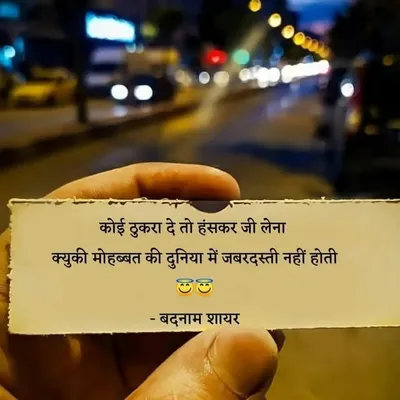 कोई ठुकरा दे तो हंसकर जी लेना
क्युकी मोहब्बत की दुनिया में जबरदस्ती नहीं होती
😇😇
- बदनाम शायर